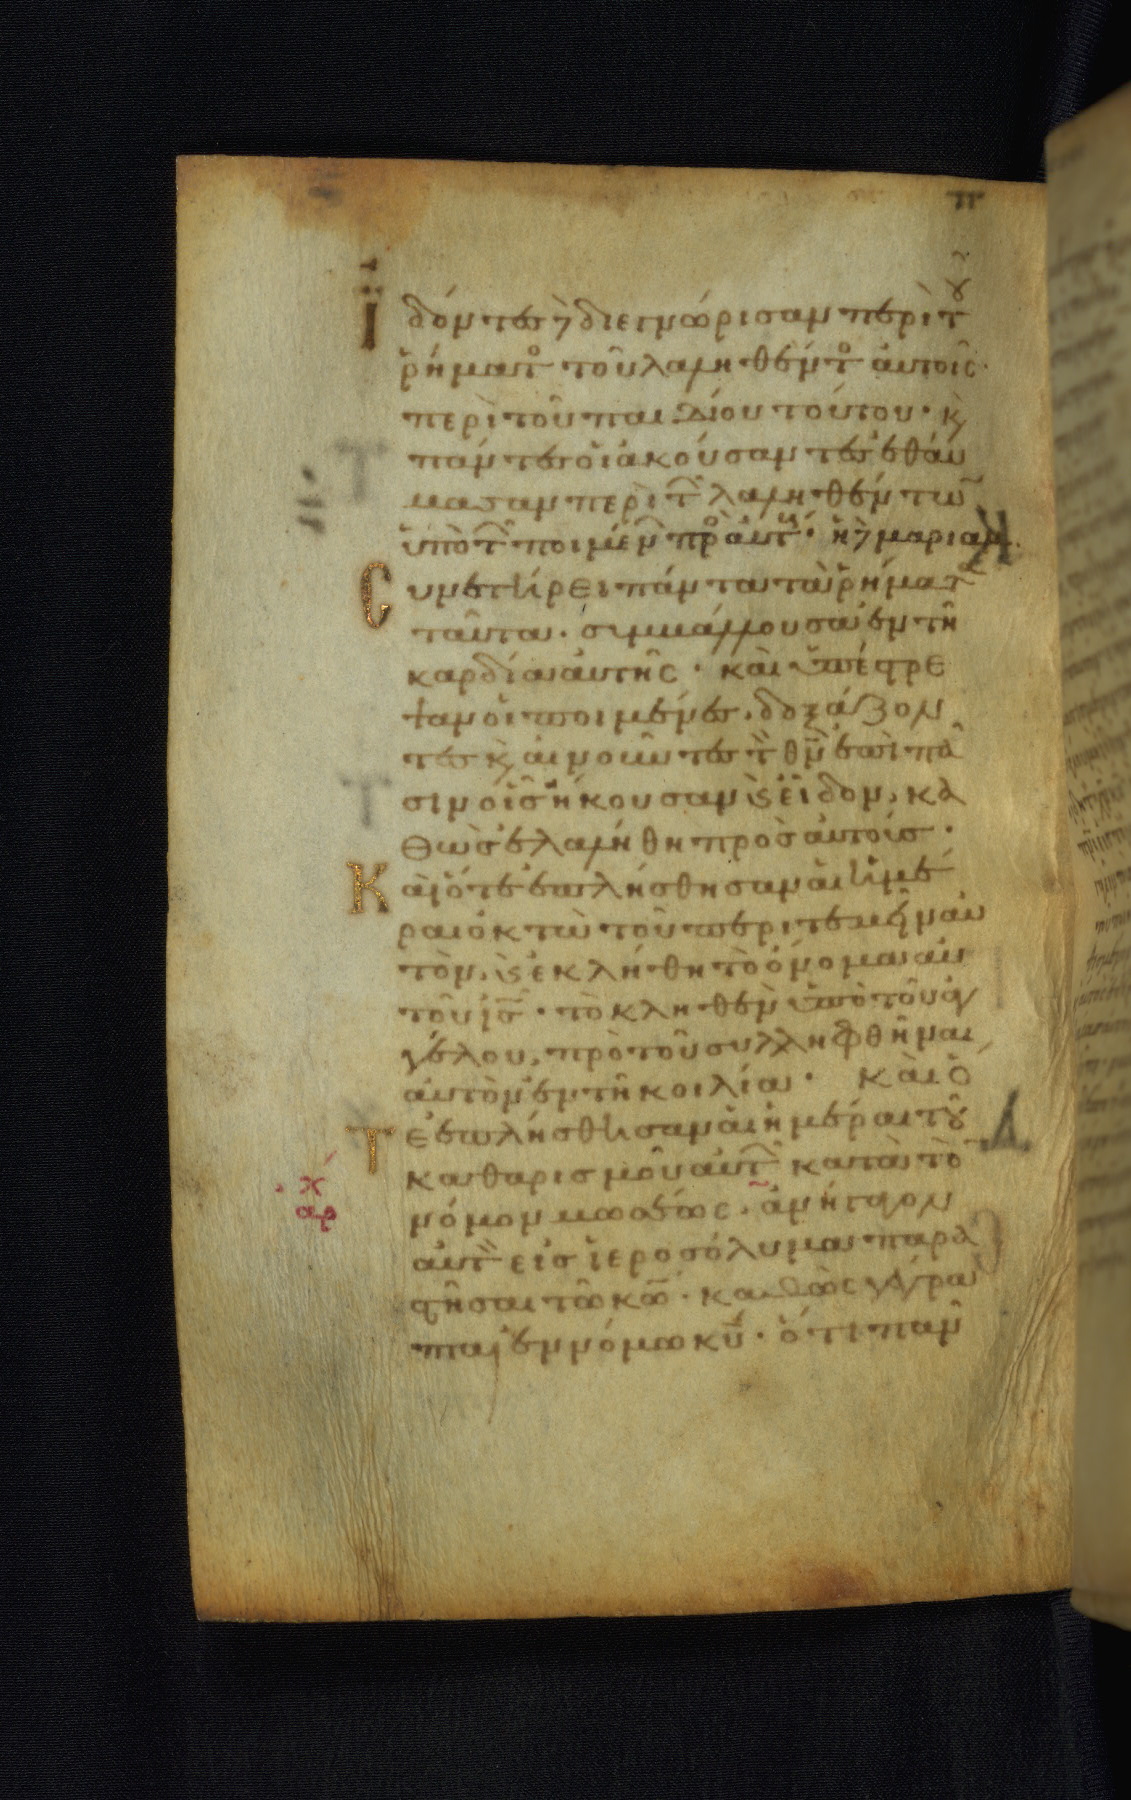 Ἰδόντες δὲ διεγνώρισαν περὶ τοῦ
ῥήματο τοῦ λαληθέντο αὐτοῖς·
περὶ τοῦ παιδίου τούτου· κ
πάντες οἱ ἀκούσαντες ἐθαύ
μασαν περὶ τ λαληθέντω
ὑπὸ τ ποιμέν προ αὐτ· ἡ δὲ μαριαμ·
Συνετήρει πάντα τὰ ῥήματ
ταῦτα· συμβάλλουσα ἐν τῆ
καρδία αὐτῆς· καὶ ὑπέστρε
ψαν οἱ ποιμένες, δοξάζον
τες κ αἰνοῦντες τ θν ἐπὶ πᾶ
σιν οἷς ἤκουσαν κ εἶδον, κα
θὼς ἐλαλήθη πρὸς αὐτοίς·
Καὶ ὅτε ἐπλήσθησαν αἱ ἡμέ
ραι ὀκτὼ τοῦ περιτεμεῖν αὐ
τὸν, κ ἐκλήθη τὸ ὄνομα αὐ
τοῦ ις· τὸ κληθὲν ὑπὸ τοῦ ἀγ
γέλου, πρὸ τοῦ συλληφθῆναι
αὐτὸν ἐν τῆ κοιλία· Καὶ ὅ
Τε ἐπλήσθησαν αἱ ἡμέραι τοῦ
καθαρισμοῦ αὐτ κατὰ τὸ
χ
αρ
νόμον μωσέως· ἀνήγαγον
αὐτ εἰς ἱεροσόλυμα παρα
στῆσαι τῶ κω· καθὼς γέγρα
πται ἐν νόμω κυ· ὅτι πᾶν